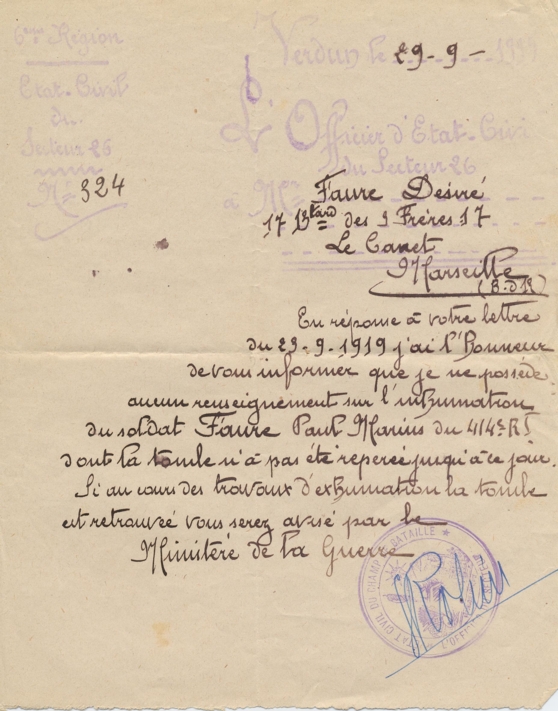 6ème Région
Etat-Civil
du
Secteur 26
No 324
Verdun le 29-9- 1919
L'Officier d'Etat-Civil
du Secteur 26
à Mr Faure Désiré
17 Btard des 2 Frères 17
Le Canet
Marseille
(B.d.R)
En réponse à votre lettre
du 23-9-1919 j'ai l'Honneur
de vous informer que je ne possède
aucun renseignement sur l'inhumation
du soldat Faure Paul Marius du 414e RI
dont la tombe n'a pas été reperée jusqu'à ce jour.
Si au cours des travaux d'exhumation la tombe
est retrouveé vous serez avisé par le
Ministére de la Guerre
ETAT CIVIL DU CHAMP BATAILLE ★
L'OFFI